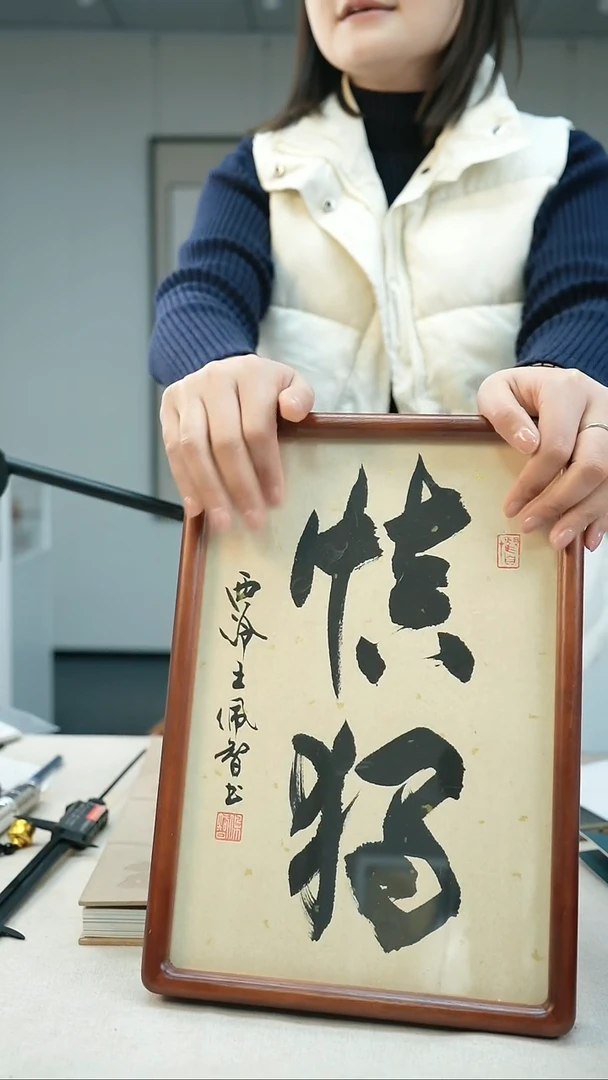 慎獨
西泠王佩智书